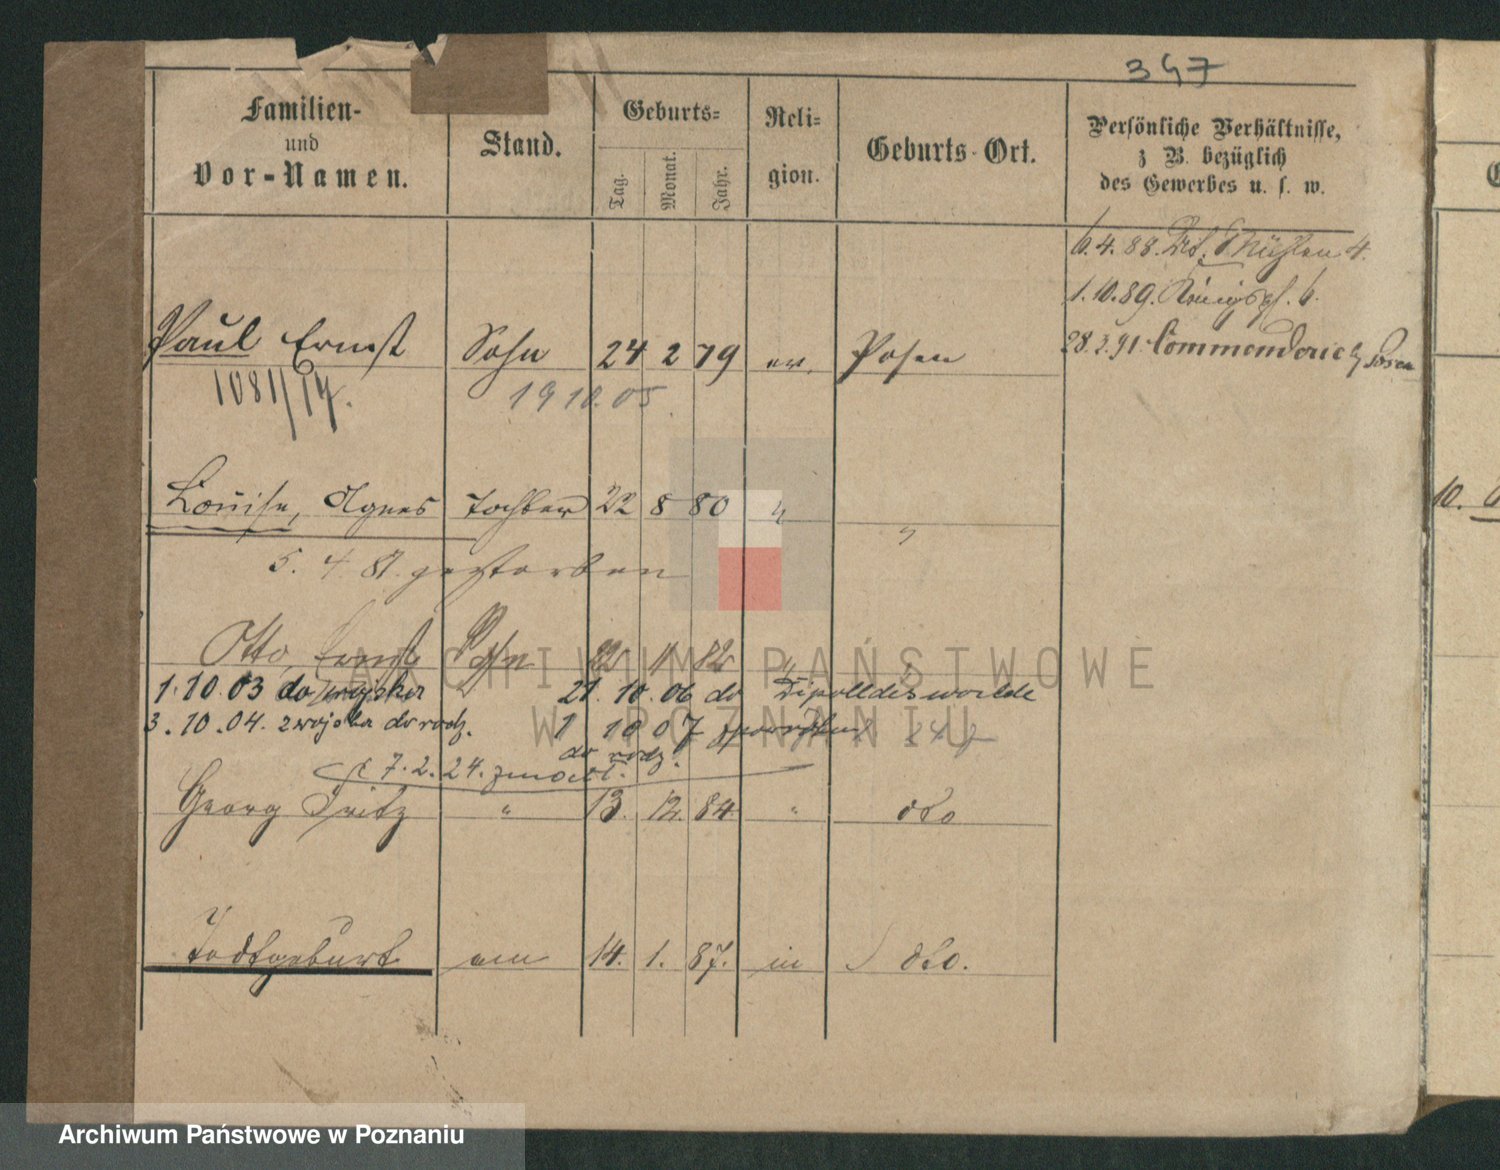 347
Familien-
und
Vor-Namen.
Stand.
Geburts-
Tag.
Monat.
Jahr.
Reli-
gion.
Geburts-Ort.
Persönliche Verhältnisse,
z B. bezüglich
des Gewerbes u. s. w.
6.4.88. Mühlen 4.
1.10.89. Königspl. 6.
28.2.91. Commenderie Posen
Paul Ernst Sohn 24 2 79 ev. Posen
1081/14.
19 10.05.
Louise, Agnes Tochter 22 8 80 " "
5. 4. 81. gestorben
Otto, Ernst Sohn 22 11 82 " "
1.10.03 do wojska 21. 10. 06 do
3.10.04. z wojska do rodz. 1 10 07
do rodz.
7.2.24.
Georg Fritz " 13. 12. 84 " dto
Todtgeburt am 14. 1. 87. in dto.
10.
ARCHIWUM PAŃSTWOWE
W POZNANIU
Archiwum Państwowe w Poznaniu